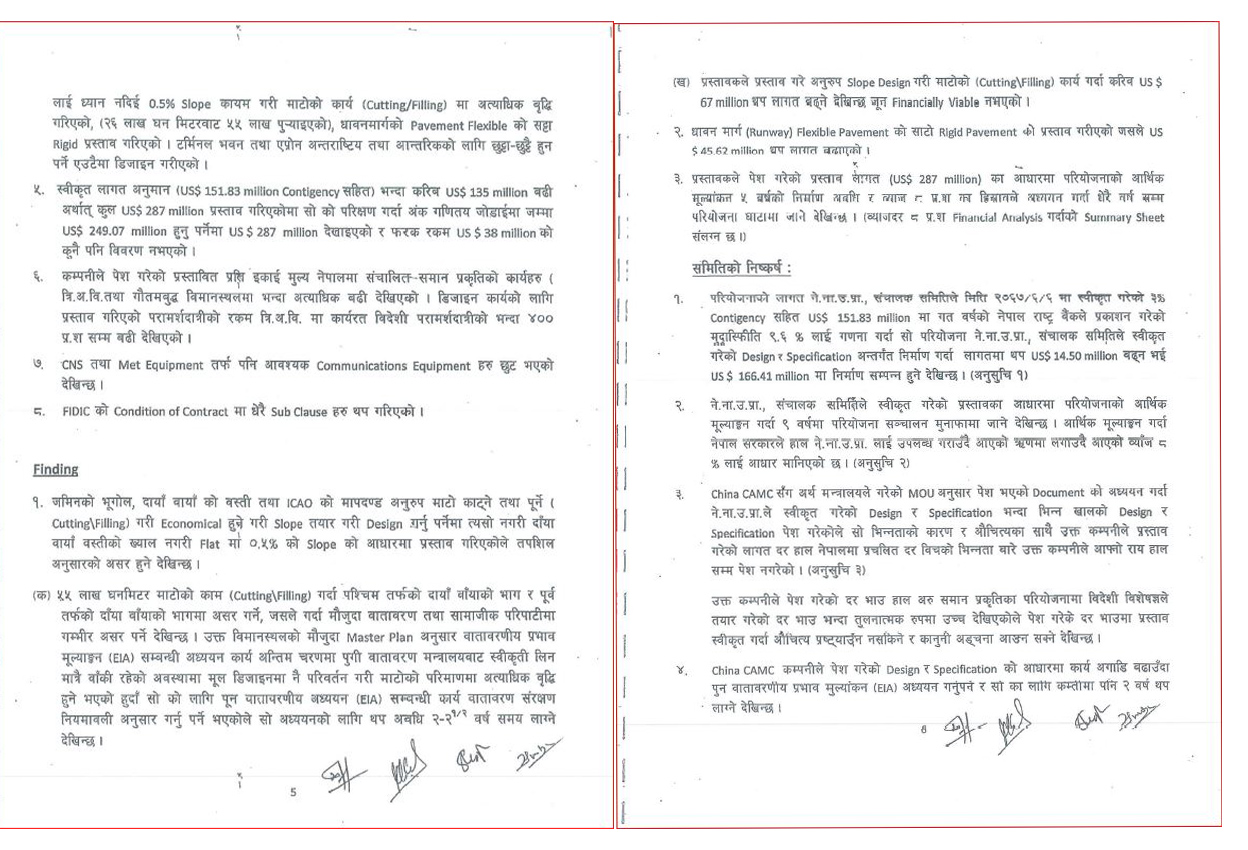 लाई ध्यान नदिई 0.5% Slope कायम गरी माटोको कार्य (Cutting/Filling) मा अत्याधिक बृद्धि
गरिएको, (२६ लाख घन मिटरवाट ५५ लाख पुऱ्याइएको), धावनमार्गको Pavement Flexible को सट्टा
Rigid प्रस्ताव गरिएको । टर्मिनल भवन तथा एप्रोन अन्तराष्टिय तथा आन्तरिकको लागि छुट्टा-छुट्टै हुन
पर्ने एउटैमा डिजाइन गरीएको ।
५. स्वीकृत लागत अनुमान (US$ 151.83 million Contigency सहित) भन्दा करिव US$ 135 million बढी
अर्थात् कुल US$ 287 million प्रस्ताव गरिएकोमा सो को परिक्षण गर्दा अंक गणितय जोडाईमा जम्मा
US$ 249.07 million हुनु पर्नेमा US $ 287 million देखाइएको र फरक रकम US $ 38 million को
कुनै पनि विवरण नभएको ।
६. कम्पनीले पेश गरेको प्रस्तावित प्रति इकाई मुल्य नेपालमा संचालित समान प्रकृतिको कार्यहरु (
त्रि.अ.वि.तथा गौतमबुद्ध विमानस्थलमा भन्दा अत्याधिक बढी देखिएको । डिजाइन कार्यको लागि
प्रस्ताव गरिएको परामर्शदात्रीको रकम त्रि.अ.वि. मा कार्यरत विदेशी परामर्शदात्रीको भन्दा ४००
प्र.श सम्म बढी देखिएको ।
७. CNS तथा Met Equipment तर्फ पनि आवश्यक Communications Equipment हरु छुट भएको
देखिन्छ ।
८. FIDIC को Condition of Contract मा धेरै Sub Clause हरु थप गरिएको ।
Finding
१. जमिनको भूगोल, दायाँ वायाँ को वस्ती तथा ICAO को मापदण्ड अनुरुप माटो काट्ने तथा पूर्ने (
Cutting\Filling) गरी Economical हुने गरी Slope तयार गरी Design गर्नु पर्नेमा त्यसो नगरी दाँया
वायाँ वस्तीको ख्याल नगरी Flat मा ०.५% को Slope को आधारमा प्रस्ताव गरिएकोले तपशिल
अनुसारको असर हुने देखिन्छ ।
(क) ५५ लाख घनमिटर माटोको काम (Cutting\Filling) गर्दा पश्चिम तर्फको दायाँ बाँयाको भाग र पूर्व
तर्फको दाँया बाँयाको भागमा असर गर्ने, जसले गर्दा मौजुदा वातावरण तथा सामाजीक परिपाटीमा
गम्भीर असर पर्ने देखिन्छ । उक्त विमानस्थलको मौजुदा Master Plan अनुसार वातावरणीय प्रभाव
मूल्याङ्कन (EIA) सम्वन्धी अध्ययन कार्य अन्तिम चरणमा पुगी वातावरण मन्त्रालयबाट स्वीकृती लिन
मात्रै वाँकी रहेको अवस्थामा मूल डिजाइनमा नै परिवर्तन गरी माटोको परिमाणमा अत्याधिक वृद्धि
हुने भएको हुदाँ सो को लागि पून वातावरणीय अध्ययन (EIA) सम्वन्धी कार्य वातावरण संरक्षण
नियमावली अनुसार गर्नु पर्ने भएकोले सो अध्ययनको लागि थप अवधि २-२१/२ वर्ष समय लाग्ने
देखिन्छ ।
5
(ख) प्रस्तावकले प्रस्ताव गरे अनुरुप Slope Design गरी माटोको (Cutting\Filling) कार्य गर्दा करिव US $
67 million थप लागत बढ्ने देखिन्छ जून Financially Viable नभएको ।
२. धावन मार्ग (Runway) Flexible Pavement को साटो Rigid Pavement को प्रस्ताव गरीएको जसले US
$ 45.62 million थप लागत बढाएको ।
३. प्रस्तावकले पेश गरेको प्रस्ताव लागत (US$ 287 million) का आधारमा परियोजनाको आर्थिक
मूल्यांकन ५ बर्षको निर्माण अवधि र व्याज ८ प्र.श का हिसावले अध्ययन गर्दा धेरै वर्ष सम्म
परियोजना घाटामा जाने देखिन्छ । (व्याजदर ८ प्र.श Financial Analysis गर्दाको Summary Sheet
संलग्न छ ।)
समितिको निष्कर्ष :
१. परियोजनाको लागत ने.ना.उ.प्रा., संचालक समितिले मिति २०६७/६/६ मा स्वीकृत गरेको ३%
Contigency सहित US$ 151.83 million मा गत वर्षको नेपाल राष्ट्र बैंकले प्रकाशन गरेको
मूद्रास्फिती ९.६ % लाई गणना गर्दा सो परियोजना ने.ना.उ.प्रा., संचालक समितिले स्वीकृत
गरेको Design र Specification अन्तर्गत निर्माण गर्दा लागतमा थप US$ 14.50 million बढ्न भई
US $ 166.41 million मा निर्माण सम्पन्न हुने देखिन्छ । (अनुसुचि १)
२. ने.ना.उ.प्रा., संचालक समितिले स्वीकृत गरेको प्रस्तावका आधारमा परियोजनाको आर्थिक
मूल्याङ्कन गर्दा ९ वर्षमा परियोजना सञ्चालन मुनाफामा जाने देखिन्छ । आर्थिक मूल्याङ्कन गर्दा
नेपाल सरकारले हाल ने.ना.उ.प्रा. लाई उपलब्ध गराउँदै आएको ऋणमा लगाउदै आएको व्याज ८
% लाई आधार मानिएको छ । (अनुसुचि २)
३. China CAMC सँग अर्थ मन्त्रालयले गरेको MOU अनुसार पेश भएको Document को अध्ययन गर्दा
ने.ना.उ.प्रा.ले स्वीकृत गरेको Design र Specification भन्दा भिन्न खालको Design र
Specification पेश गरेकोले सो भिन्नताको कारण र औचित्यका साथै उक्त कम्पनीले प्रस्ताव
गरेको लागत दर हाल नेपालमा प्रचलित दर विचको भिन्नता बारे उक्त कम्पनीले आफ्नो राय हाल
सम्म पेश नगरेको । (अनुसुचि ३)
उक्त कम्पनीले पेश गरेको दर भाउ हाल अरु समान प्रकृतिका परियोजनामा विदेशी विशेषज्ञले
तयार गरेको दर भाउ भन्दा तुलनात्मक रुपमा उच्च देखिएकोले पेश गरेके दर भाउमा प्रस्ताव
स्वीकृत गर्दा औचित्य प्रष्ट्याउँन नसकिने र कानुनी अड्चना आउन सक्ने देखिन्छ ।
४. China CAMC कम्पनीले पेश गरेको Design र Specification को आधारमा कार्य अगाडि बढाउँदा
पुन वातावरणीय प्रभाव मुल्यांकन (EIA) अध्ययन गर्नुपने र सो का लागि कम्तीमा पनि २ वर्ष थप
लाग्ने देखिन्छ ।
6